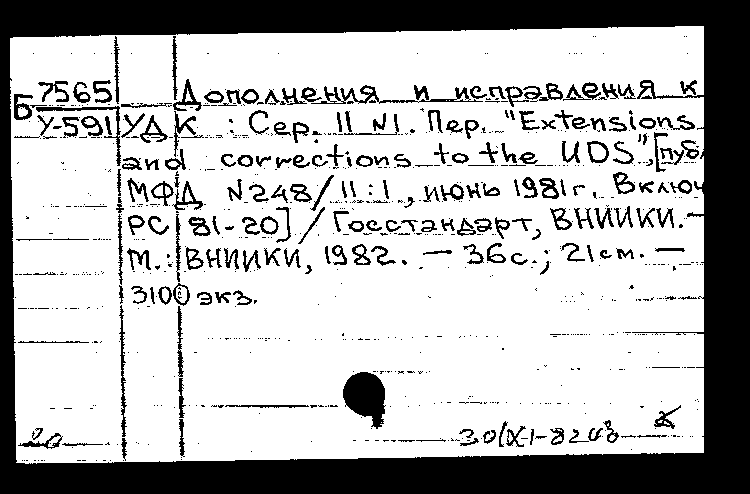 Б 7565 Дополнения и исправления к
У-591 УДК : Сер. 11 №1. Пер. "Extensions
and corrections to the UDS", [публ
МФД N248/11:1, июнь 1981г. Включ
РС 81-20] / Госстандарт, ВНИИКИ. —
М.: ВНИИКИ, 1982. — 36с.; 21см. —
3100 экз.
20